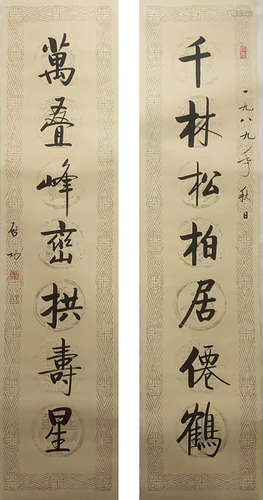 一九八九年秋日
千林松柏居僊鶴
萬叠峰巒拱壽星
启功